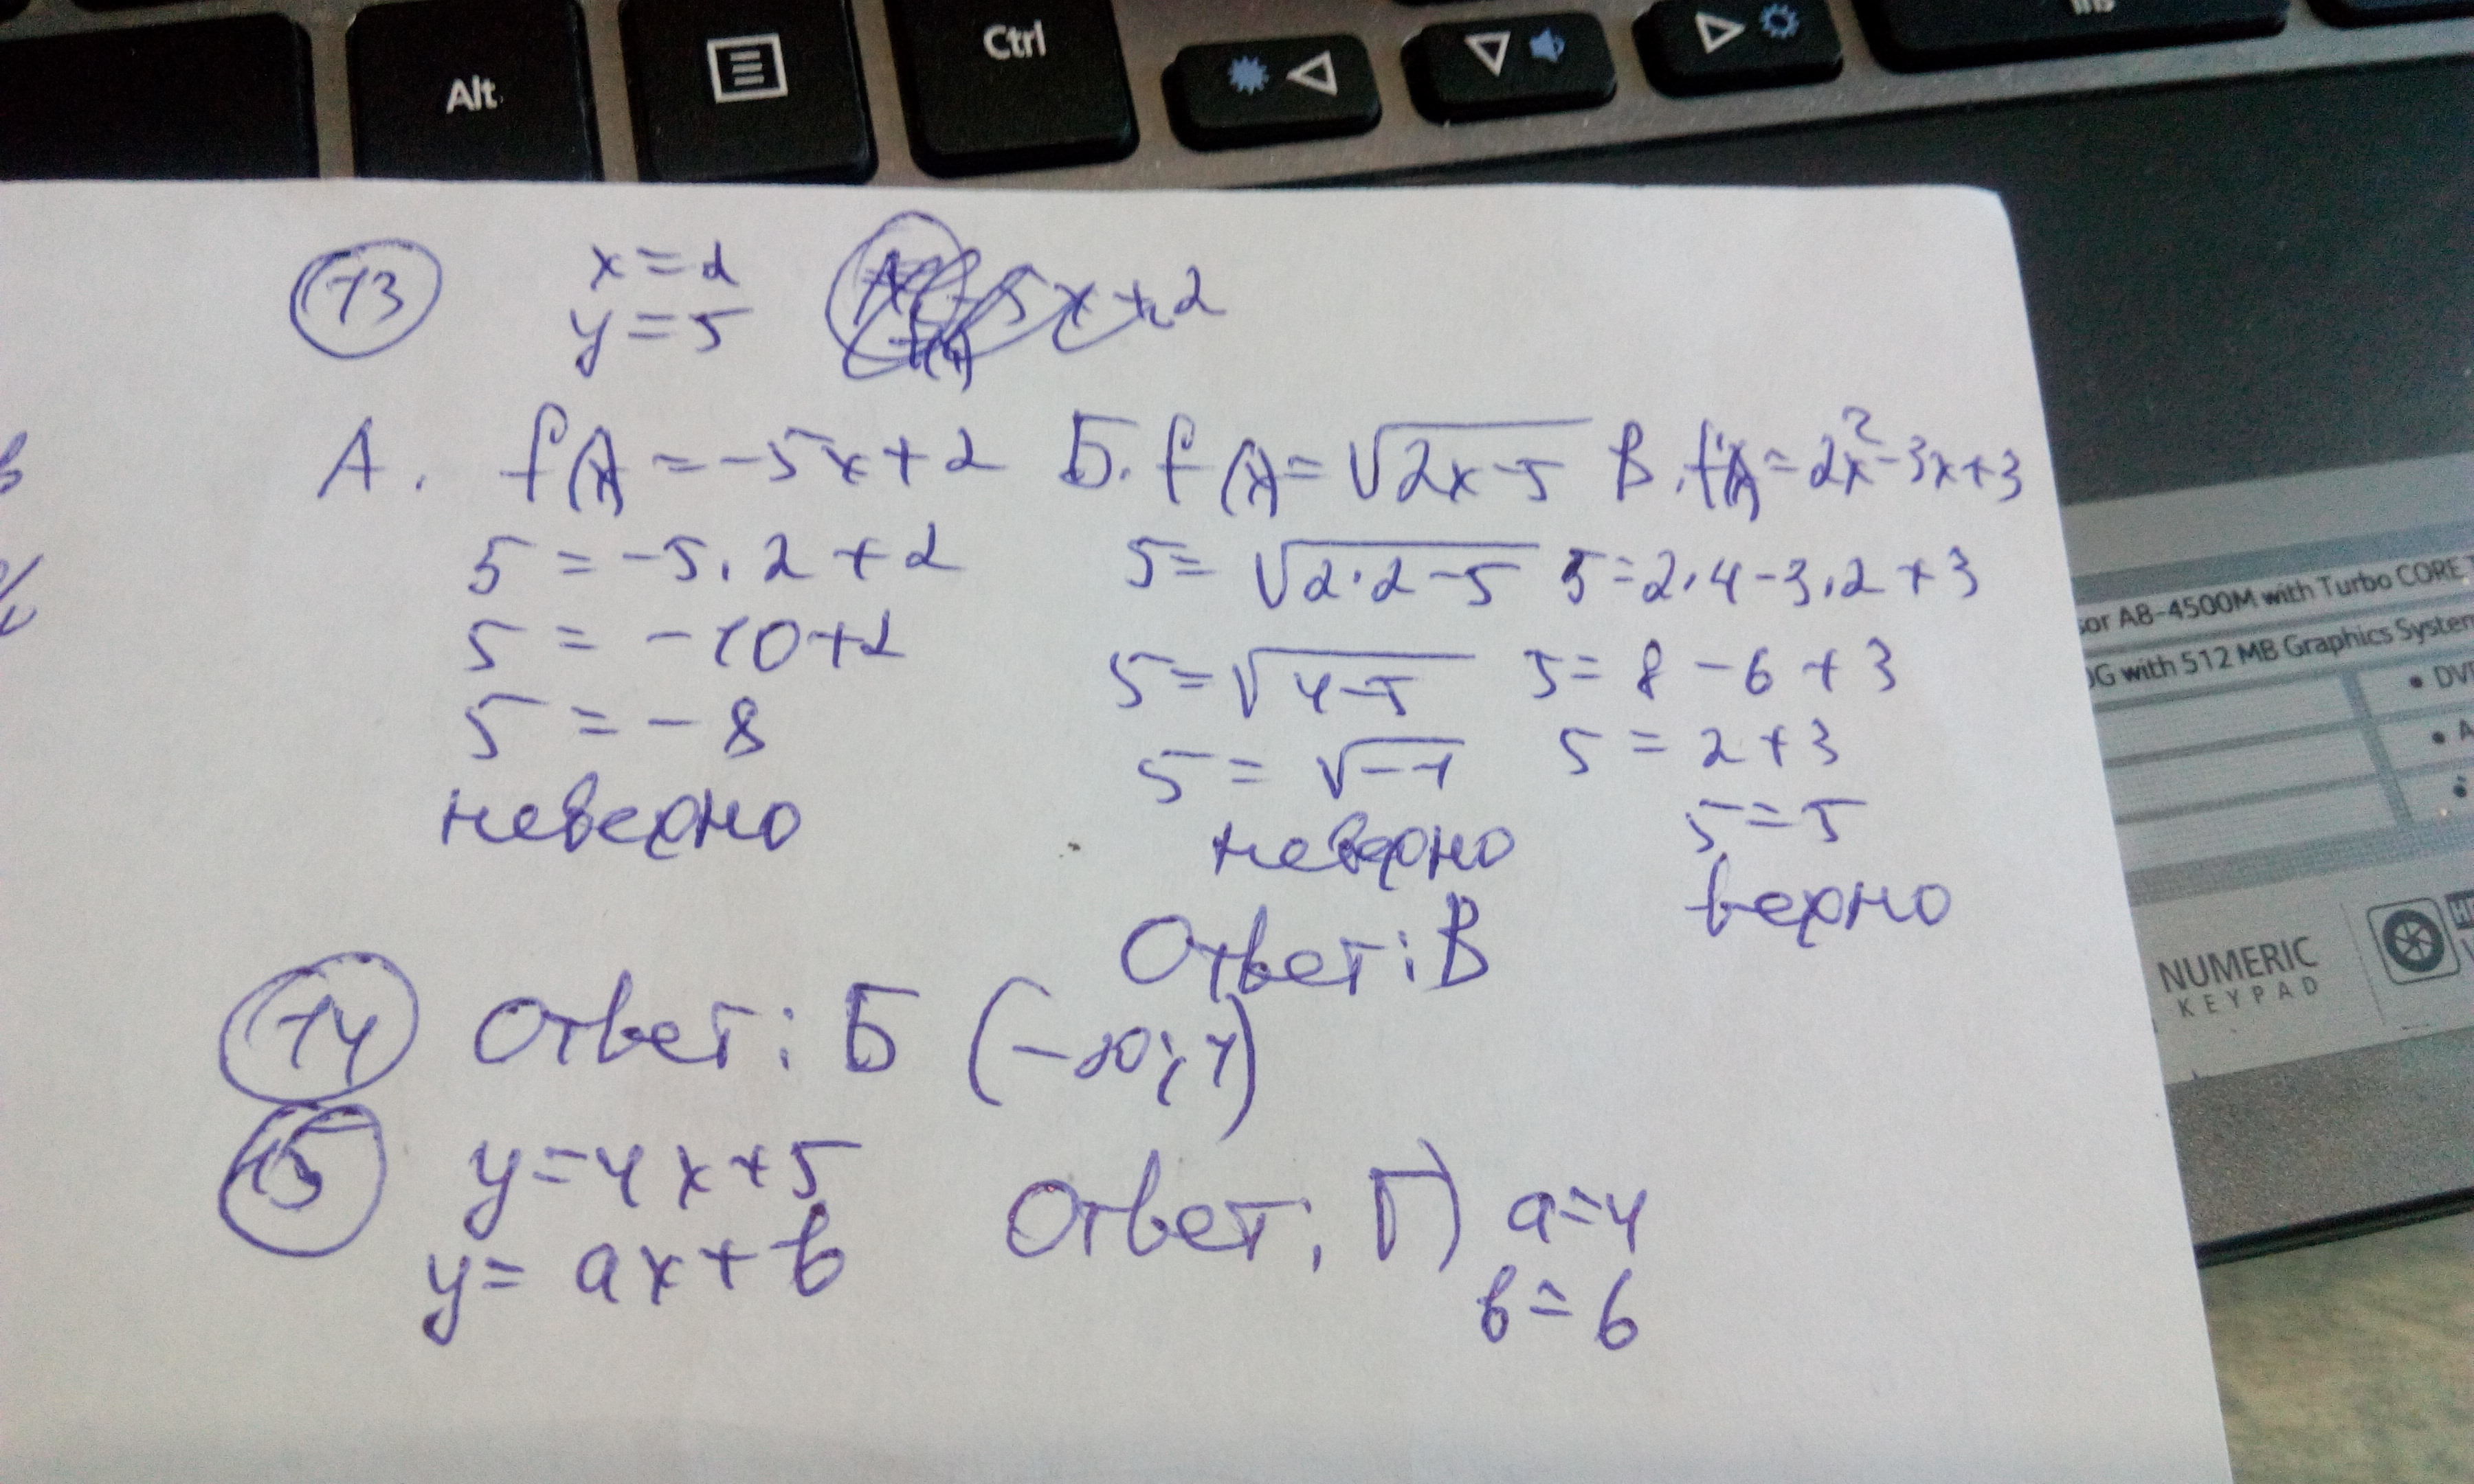 Alt
Ctrl
Ins
13
x=2
y=5
x+2
А. f(x)=-5x+2
5=-5·2+2
5=-10+2
5=-8
неверно
Б. f(x)=√2x-5
5=√2·2-5
5=√4-5
5=√-1
неверно
В. f(x)=2x²-3x+3
5=2·4-3·2+3
5=8-6+3
5=2+3
5=5
верно
Ответ: В
14 Ответ: Б
15 y=4x+5
y=ax+b
Ответ: Г) a=4
b=6
or A8-4500M with Turbo CORE
G with 512 MB Graphics System
NUMERIC
KEYPAD